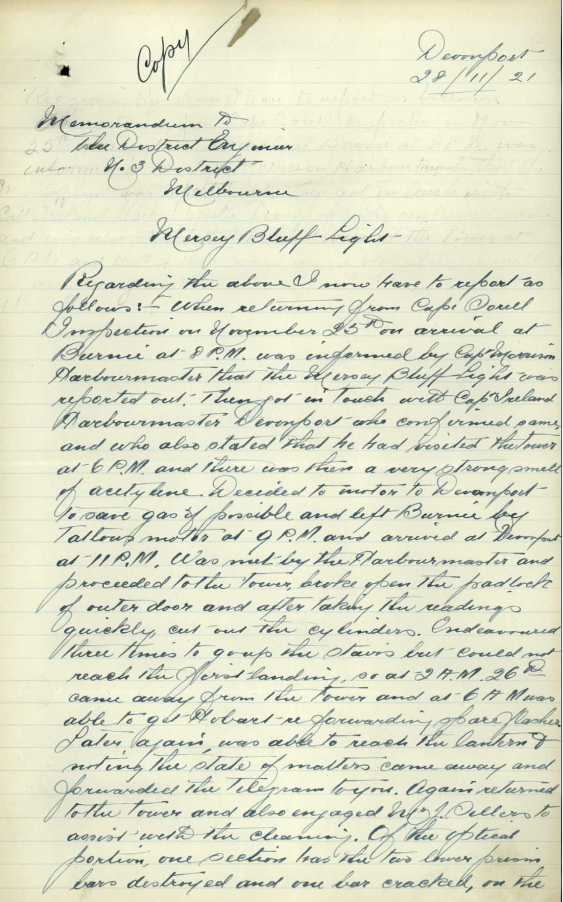 Copy
Devonport
28/11/21
Memorandum to
The District Engineer
No. 3 District
Melbourne
Mersey Bluff Light
Regarding the above I now have to report as
follows:- When returning from Cape Sorell
Inspection on November 25th on arrival at
Burnie at 8 P.M. was informed by Capt Morrison
Harbourmaster that the Mersey Bluff Light was
reported out. Then got in touch with Capt Ireland
Harbourmaster Devonport who confirmed same
and who also stated that he had visited the tower
at 6 P.M. and there was then a very strong smell
of acetylene. Decided to motor to Devonport
to save gas if possible and left Burnie by
Tattows motor at 9 P.M. and arrived at Devonport
at 11 P.M. Was met by the Harbourmaster and
proceeded to the tower, broke open the padlock
of outer door and after taking the readings
quickly cut out the cylinders. Endeavoured
three times to go up the stairs but could not
reach the first landing, so at 2 A.M. 26th
came away from the tower and at 6 A M was
able to get Hobart re forwarding spare flasher
Later again, was able to reach the lantern &
noting the state of matters came away and
forwarded the telegram to you. Again returned
to the tower and also engaged Mr J. Cellers to
assist with the cleaning. Of the optical
portion, one section has the two lower prism
bars destroyed and one bar cracked, on the